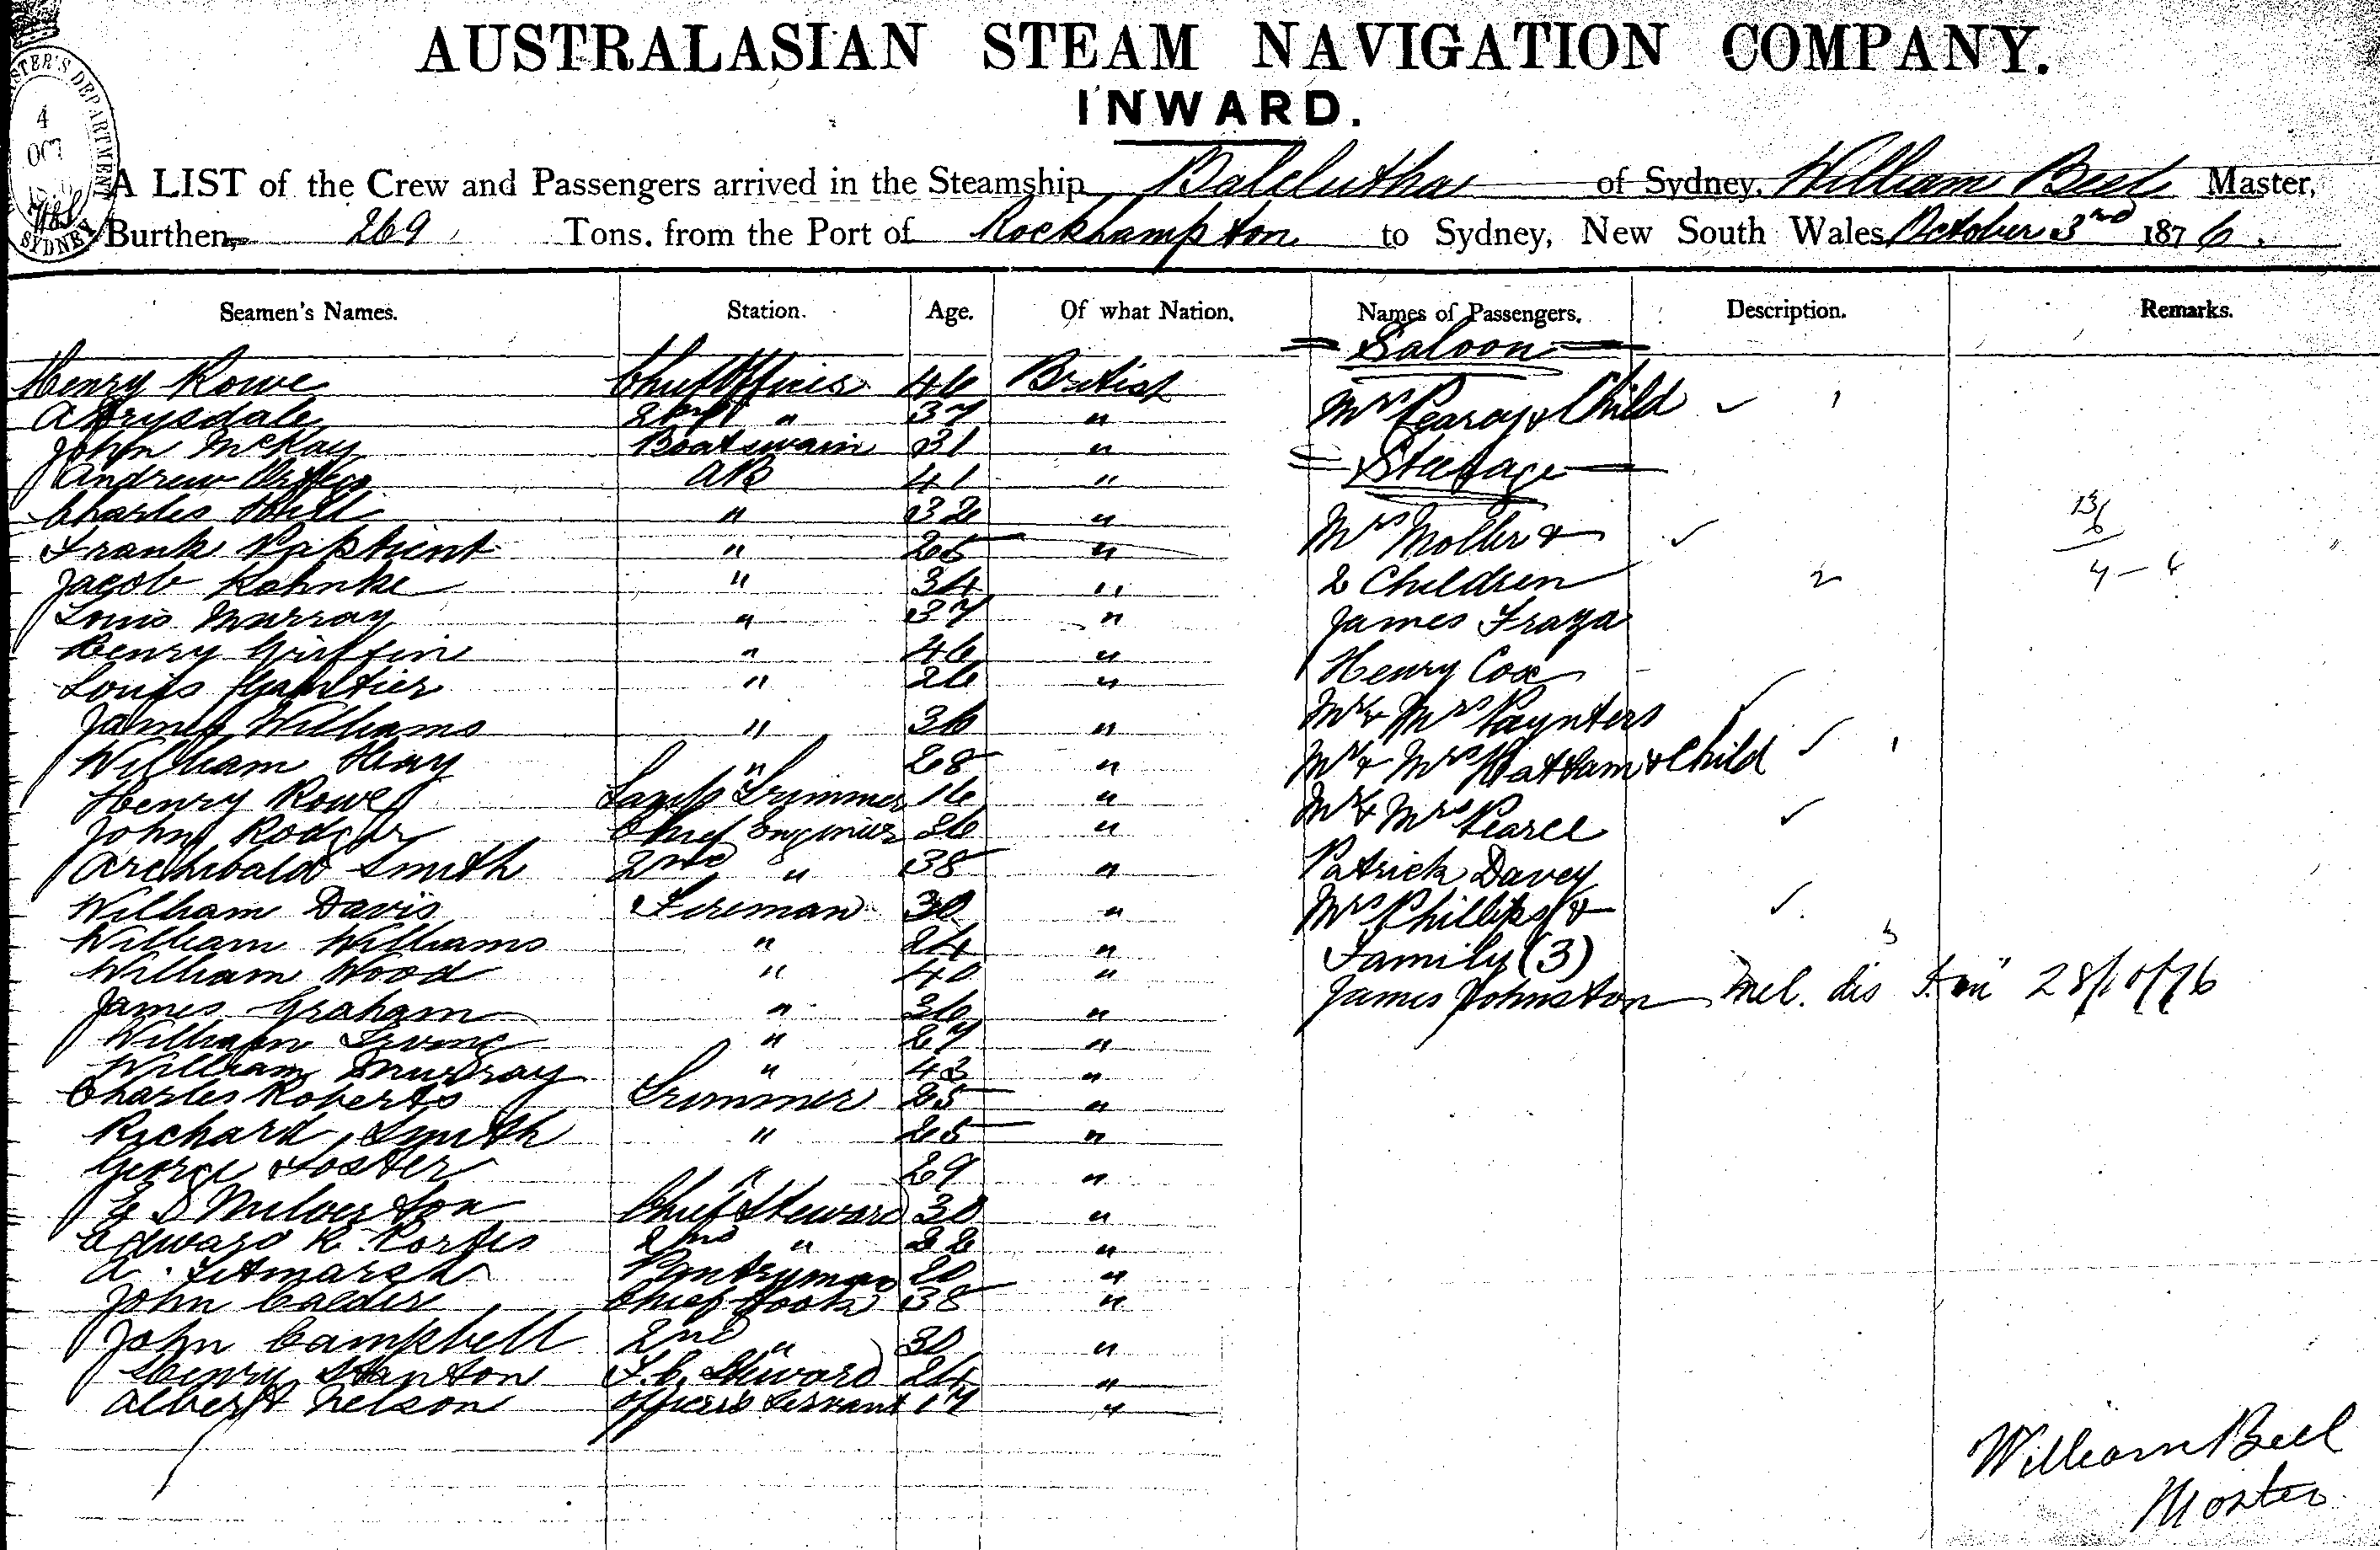 AUSTRALASIAN STEAM NAVIGATION COMPANY.
INWARD.
4
OCT
SYDNEY
A LIST of the Crew and Passengers arrived in the Steamship Balclutha of Sydney, William Beel Master,
Burthen, 269 Tons. from the Port of Rockhampton to Sydney, New South Wales October 3rd 1876.
Seamen's Names. Station. Age. Of what Nation. Names of Passengers. Description. Remarks.
Henry Rowe Chief Officer 46 British
A Drysdale 2nd " 37 "
John McKay Boatswain 31 "
Andrew AB 41 "
Charles " 32 "
Frank " 25 "
Jacob Kohnke " 34 "
Louis Murray " 37 "
Henry Griffin " 46 "
Louis Gautier " 26 "
James Williams " 36 "
William Hay " 28 "
Henry Rowe Lamp Trimmer 16 "
John Rodger Chief Engineer 36 "
Archibald Smith 2nd " 38 "
William Davis Fireman 30 "
William Williams " 24 "
William Wood " 40 "
James Graham " 36 "
William Irvine " 27 "
William Murray " 43 "
Charles Roberts Trimmer 25 "
Richard Smith " 25 "
George Foster " 29 "
E S Milverton Chief Steward 30 "
Edward R. Porter 2nd " 22 "
A. Titmarsh Pantryman 20 "
John Calder Chief Cook 38 "
John Campbell 2nd " 30 "
Henry Stanton F.C. Steward 24 "
Albert Nelson Officers Servant 17 "
= Saloon =
Mrs Pearcy & Child 1
= Steerage =
Mrs Moller &
2 Children 2
James Fraza
Henry Cox
Mr & Mrs Paynters
Mr & Mrs Hattam & Child 1
Mr & Mrs Pearce
Patrick Davey
Mrs Phillips &
Family (3) 3
James Johnston incl. dis 28/10/76
13/6
William Beel
Master